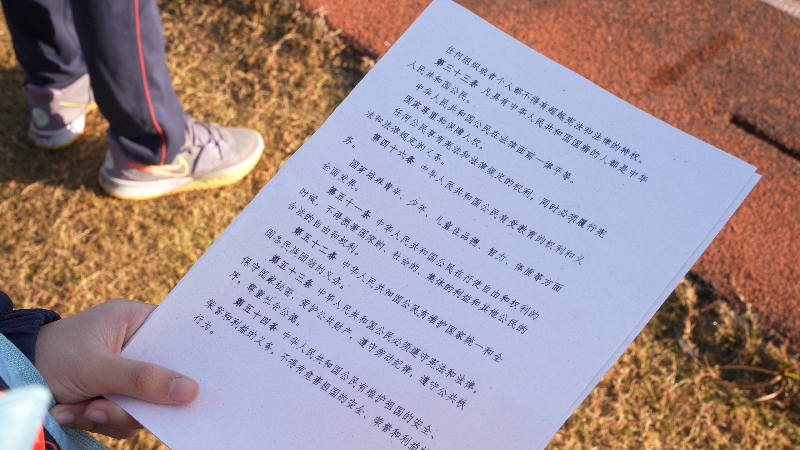 任何组织或者个人都不得有超越宪法和法律的特权。
第三十三条 凡具有中华人民共和国国籍的人都是中华
人民共和国公民。
中华人民共和国公民在法律面前一律平等。
国家尊重和保障人权。
任何公民享有宪法和法律规定的权利，同时必须履行宪
法和法律规定的义务。
第四十六条 中华人民共和国公民有受教育的权利和义
务。
国家培养青年、少年、儿童在品德、智力、体质等方面
全面发展。
第五十一条 中华人民共和国公民在行使自由和权利的
时候，不得损害国家的、社会的、集体的利益和其他公民的
合法的自由和权利。
第五十二条 中华人民共和国公民有维护国家统一和全
国各民族团结的义务。
第五十三条 中华人民共和国公民必须遵守宪法和法律，
保守国家秘密，爱护公共财产，遵守劳动纪律，遵守公共秩
序，尊重社会公德。
第五十四条 中华人民共和国公民有维护祖国的安全、
荣誉和利益的义务，不得有危害祖国的安全、荣誉和利益
行为。